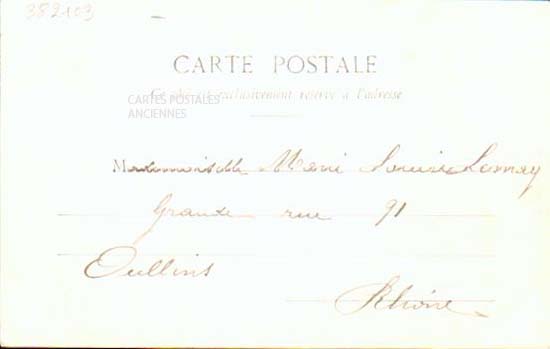 382103
CARTE POSTALE
Ce côté est exclusivement réservé à l'adresse
CARTES POSTALES
ANCIENNES
Mademoiselle Marie Louise
Grande rue 91
Oullins
Rhône